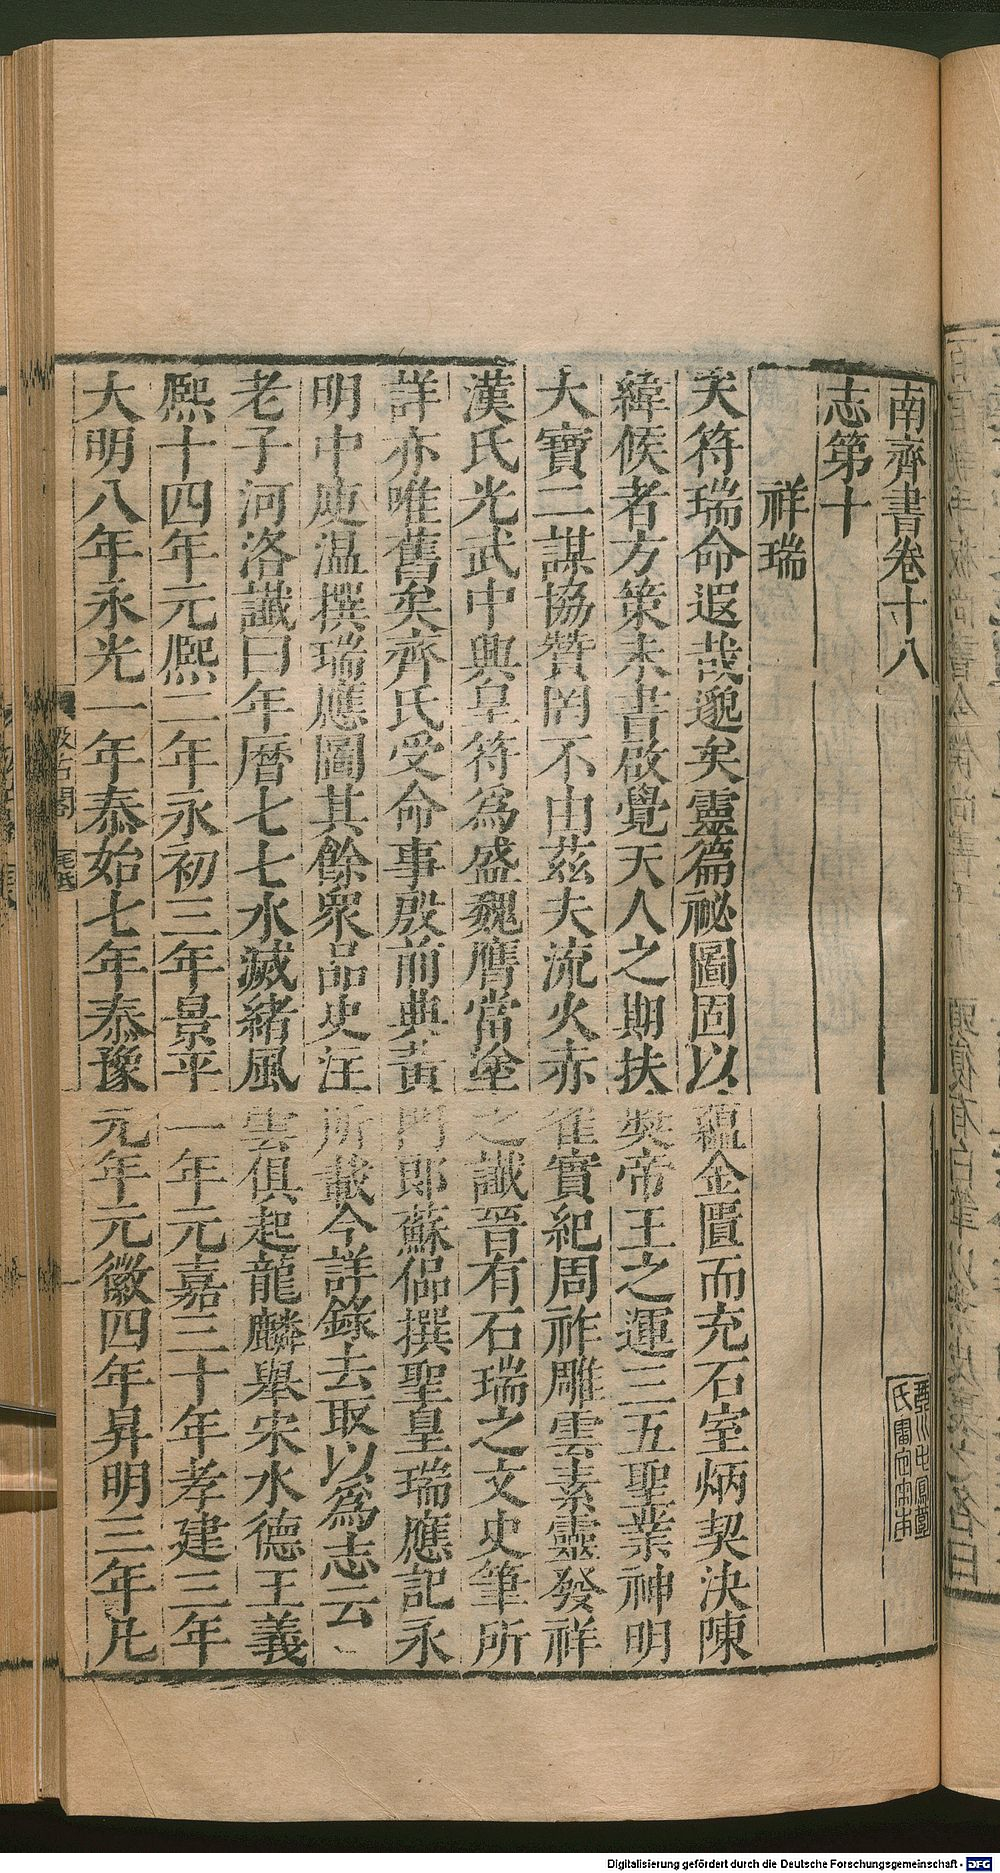 南齊書卷十八
志第十
祥瑞
天符瑞命遐哉邈矣靈篇祕圖固以蘊金匱而充石室炳契決陳
緯候者方策未書啟覺天人之期扶奬帝王之運三五聖業神明
大寶二謀協贊罔不由茲夫流火赤雀實紀周祚雕雲素靈發祥
漢氏光武中興皇符爲盛魏膺當塗之讖晉有石瑞之文史筆所
詳亦唯舊矣齊氏受命事殷前典黃門郎蘇偘撰聖皇瑞應記永
明中庾温撰瑞應圖其餘衆品史注所載今詳錄去取以爲志云
老子河洛讖曰年曆七七水滅緒風雲俱起龍麟舉宋水德王義
熙十四年元熙二年永初三年景平一年元嘉三十年孝建三年
大明八年永光一年泰始七年泰豫元年元徽四年昇明三年凡
汲古閣
毛氏
Digitalisierung gefördert durch die Deutsche Forschungsgemeinschaft - DFG